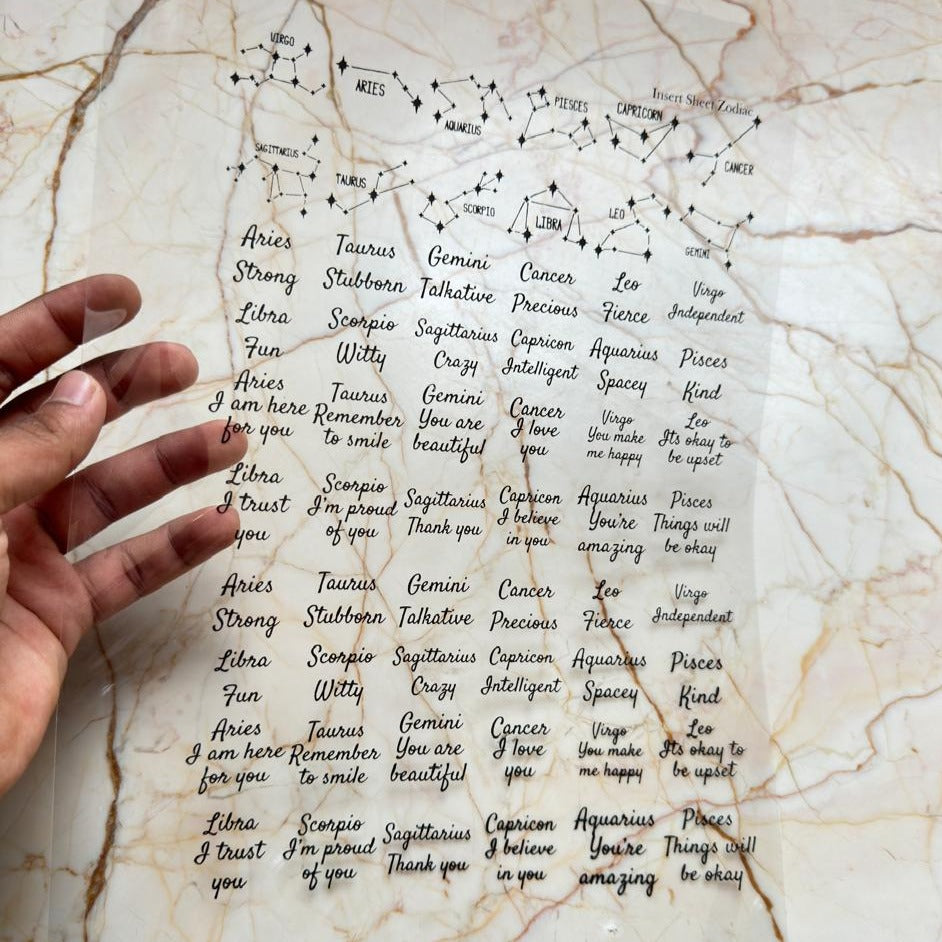 VIRGO
ARIES
AQUARIUS
PIESCES
CAPRICORN
Insert Sheet Zodiac
CANCER
SAGITTARIUS
TAURUS
SCORPIO
LIBRA
LEO
GEMINI
Aries Taurus Gemini Cancer Leo Virgo
Strong Stubborn Talkative Precious Fierce Independent
Libra Scorpio Sagittarius Capricon Aquarius Pisces
Fun Witty Crazy Intelligent Spacey Kind
Aries Taurus Gemini Cancer Virgo Leo
I am here Remember You are I love You make Its okay to
for you to smile beautiful you me happy be upset
Libra Scorpio Sagittarius Capricon Aquarius Pisces
I trust I'm proud Thank you I believe You're Things will
you of you in you amazing be okay
Aries Taurus Gemini Cancer Leo Virgo
Strong Stubborn Talkative Precious Fierce Independent
Libra Scorpio Sagittarius Capricon Aquarius Pisces
Fun Witty Crazy Intelligent Spacey Kind
Aries Taurus Gemini Cancer Virgo Leo
I am here Remember You are I love You make Its okay to
for you to smile beautiful you me happy be upset
Libra Scorpio Sagittarius Capricon Aquarius Pisces
I trust I'm proud Thank you I believe You're Things will
you of you in you amazing be okay